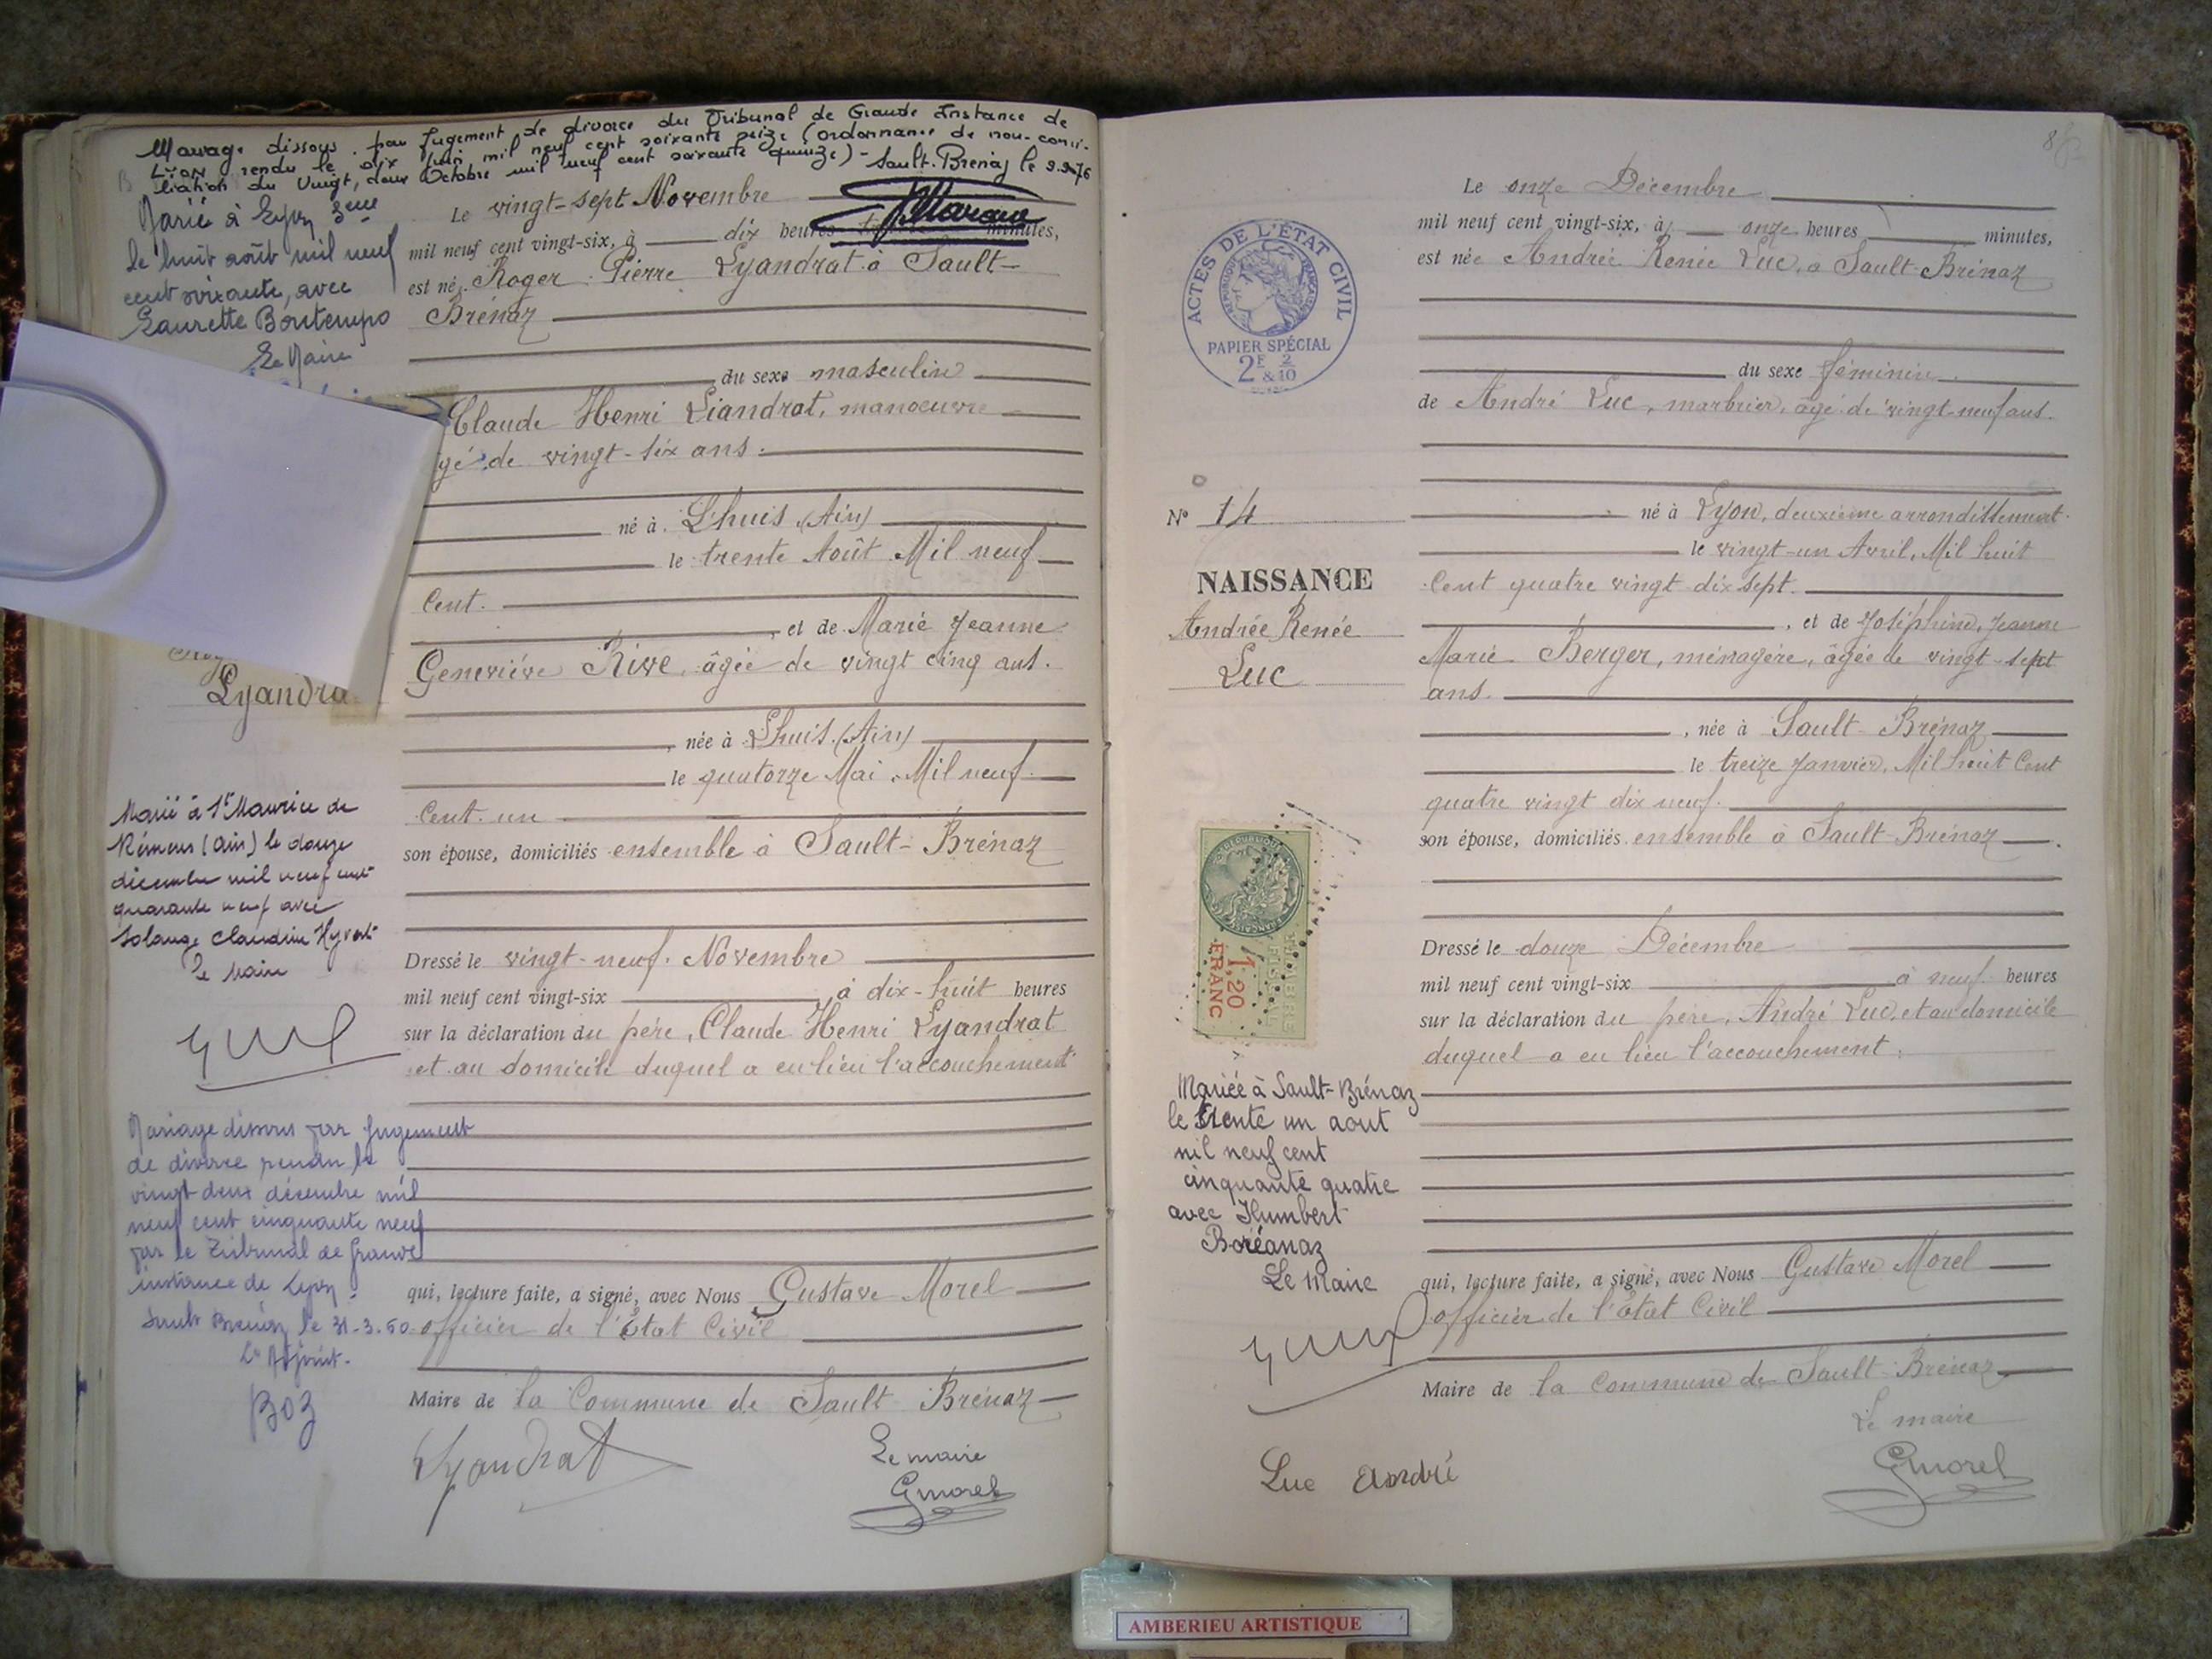 Mariage dissous par Jugement de divorce du Tribunal de Grande Instance de
Lyon rendu le dix juin mil neuf cent soixante seize (ordonnance de non-conci-
liation du Vingt, deux Octobre mil neuf cent soixante quinze) - Sault-Brénaz le 9.9.76
Marié à Lyon 3eme
le huit août mil neuf
cent soixante, avec
Laurette Bontemps
Le Maire
Lyandra
Marié à St Maurice de
Rémens (Ain) le douze
décembre mil neuf cent
quarante neuf avec
Solange Claudine Hyvert
Le Maire
Mariage dissous par Jugement
de divorce rendu le
vingt deux décembre mil
neuf cent cinquante neuf
par le Tribunal de Grande
instance de Lyon.
Sault Brénaz le 31-3.60
L'Adjoint.
Boz
Le vingt-sept Novembre
mil neuf cent vingt-six, à dix heures minutes,
est né Roger Pierre Lyandrat à Sault-
Brénaz
du sexe masculin
Claude Henri Liandrat, manoeuvre
gé de vingt-six ans.
né à Lhuis (Ain)
le trente Août Mil neuf
Cent.
, et de Marie Jeanne
Geneviève Rive, âgée de vingt cinq ans.
, née à Lhuis (Ain)
le quatorze Mai Mil neuf
Cent un
son épouse, domiciliés ensemble à Sault-Brénaz
Dressé le vingt-neuf Novembre
mil neuf cent vingt-six à dix-huit heures
sur la déclaration du père, Claude Henri Lyandrat
et au domicile duquel a eu lieu l'accouchement
qui, lecture faite, a signé, avec Nous Gustave Morel
officier de l'Etat Civil
Maire de la Commune de Sault-Brénaz
Lyandrat
Le maire
GMorel
8
ACTES DE L'ÉTAT CIVIL
RÉPUBLIQUE FRANÇAISE
PAPIER SPÉCIAL
2F 2
& 10
N° 14
NAISSANCE
Andrée Renée
Luc
1,20
FRANC
Mariée à Sault-Brénaz
le trente un aout
mil neuf cent
cinquante quatre
avec Humbert
Boréanaz
Le Maire
Le onze Décembre
mil neuf cent vingt-six, à onze heures minutes,
est née Andrée Renée Luc, à Sault-Brénaz
du sexe féminin
de André Luc, marbrier, âgé de vingt-neuf ans.
né à Lyon, deuxième arrondissement
le vingt-un Avril, Mil huit
Cent quatre vingt dix sept.
, et de Joséphine, Jeanne
Marie Berger, ménagère, âgée de vingt-sept
ans.
, née à Sault-Brénaz
le treize Janvier, Mil huit Cent
quatre vingt dix neuf.
son épouse, domiciliés ensemble à Sault-Brénaz
Dressé le douze Décembre
mil neuf cent vingt-six à neuf heures
sur la déclaration du père, André Luc, et au domicile
duquel a eu lieu l'accouchement.
qui, lecture faite, a signé, avec Nous Gustave Morel
officier de l'Etat Civil
Maire de la Commune de Sault-Brénaz
Le maire
GMorel
Luc André
AMBERIEU ARTISTIQUE